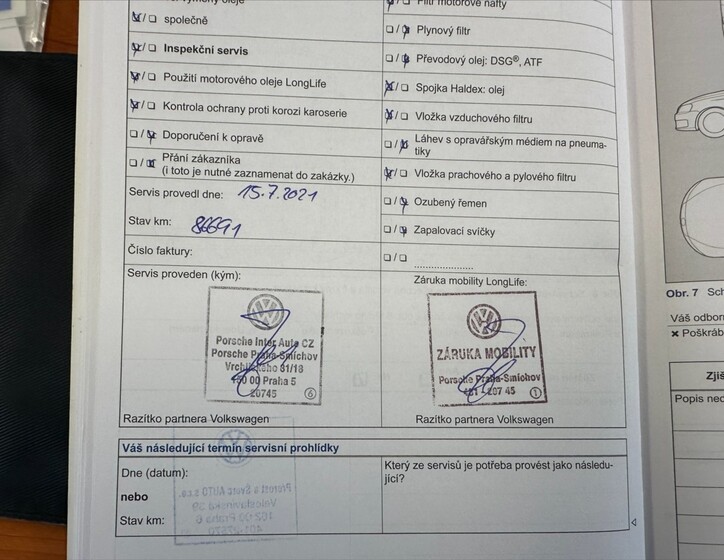 společně
Inspekční servis
Použití motorového oleje LongLife
Kontrola ochrany proti korozi karoserie
Doporučení k opravě
Přání zákazníka
(i toto je nutné zaznamenat do zakázky.)
Servis provedl dne: 15.7.2021
Stav km: 86691
Číslo faktury:
Servis proveden (kým):
Porsche Inter Auto CZ
Porsche Praha-Smíchov
Vrchlického 31/18
150 00 Praha 5
20745 6
Razítko partnera Volkswagen
Filtr motorové nafty
Plynový filtr
Převodový olej: DSG®, ATF
Spojka Haldex: olej
Vložka vzduchového filtru
Láhev s opravářským médiem na pneuma-
tiky
Vložka prachového a pylového filtru
Ozubený řemen
Zapalovací svíčky
Záruka mobility LongLife:
ZÁRUKA MOBILITY
Porsche Praha-Smíchov
1
Razítko partnera Volkswagen
Váš následující termín servisní prohlídky
Dne (datum):
nebo
Stav km:
Který ze servisů je potřeba provést jako následu-
jící?
Obr. 7 Sch
Váš odborn
× Poškráb
Zjiš
Popis ned